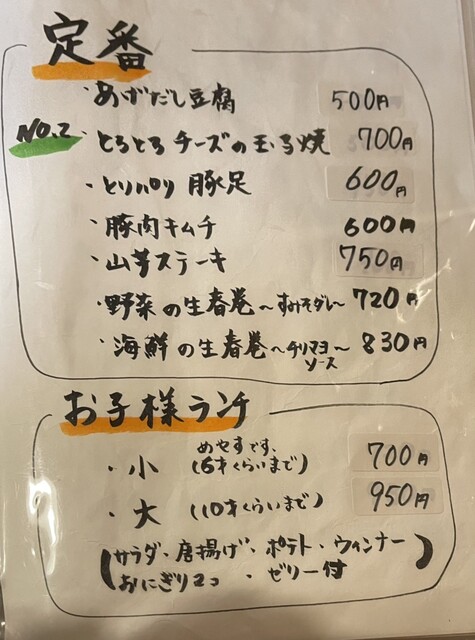 定番
・あげだし豆腐 500円
NO.2 ・とろとろチーズの玉子焼 700円
・とりパリ豚足 600円
・豚肉キムチ 600円
・山芋ステーキ 750円
・野菜の生春巻〜すみそダレ〜 720円
・海鮮の生春巻〜チリマヨソース〜 830円
お子様ランチ
めやすです。
・小 (6才くらいまで) 700円
・大 (10才くらいまで) 950円
(サラダ・唐揚げ・ポテト・ウィンナー
おにぎり2コ・ゼリー付)